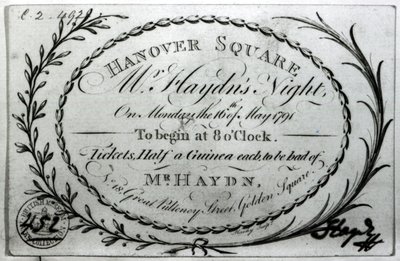 HANOVER SQUARE
Mr. Haydn's Night,
On Monday, the 16th of May 1791
To begin at 8 o'Clock.
Tickets, Half a Guinea each, to be had of
Mr. HAYDN,
No. 18, Great Pulteney Street, Golden Square.
452
Haydn